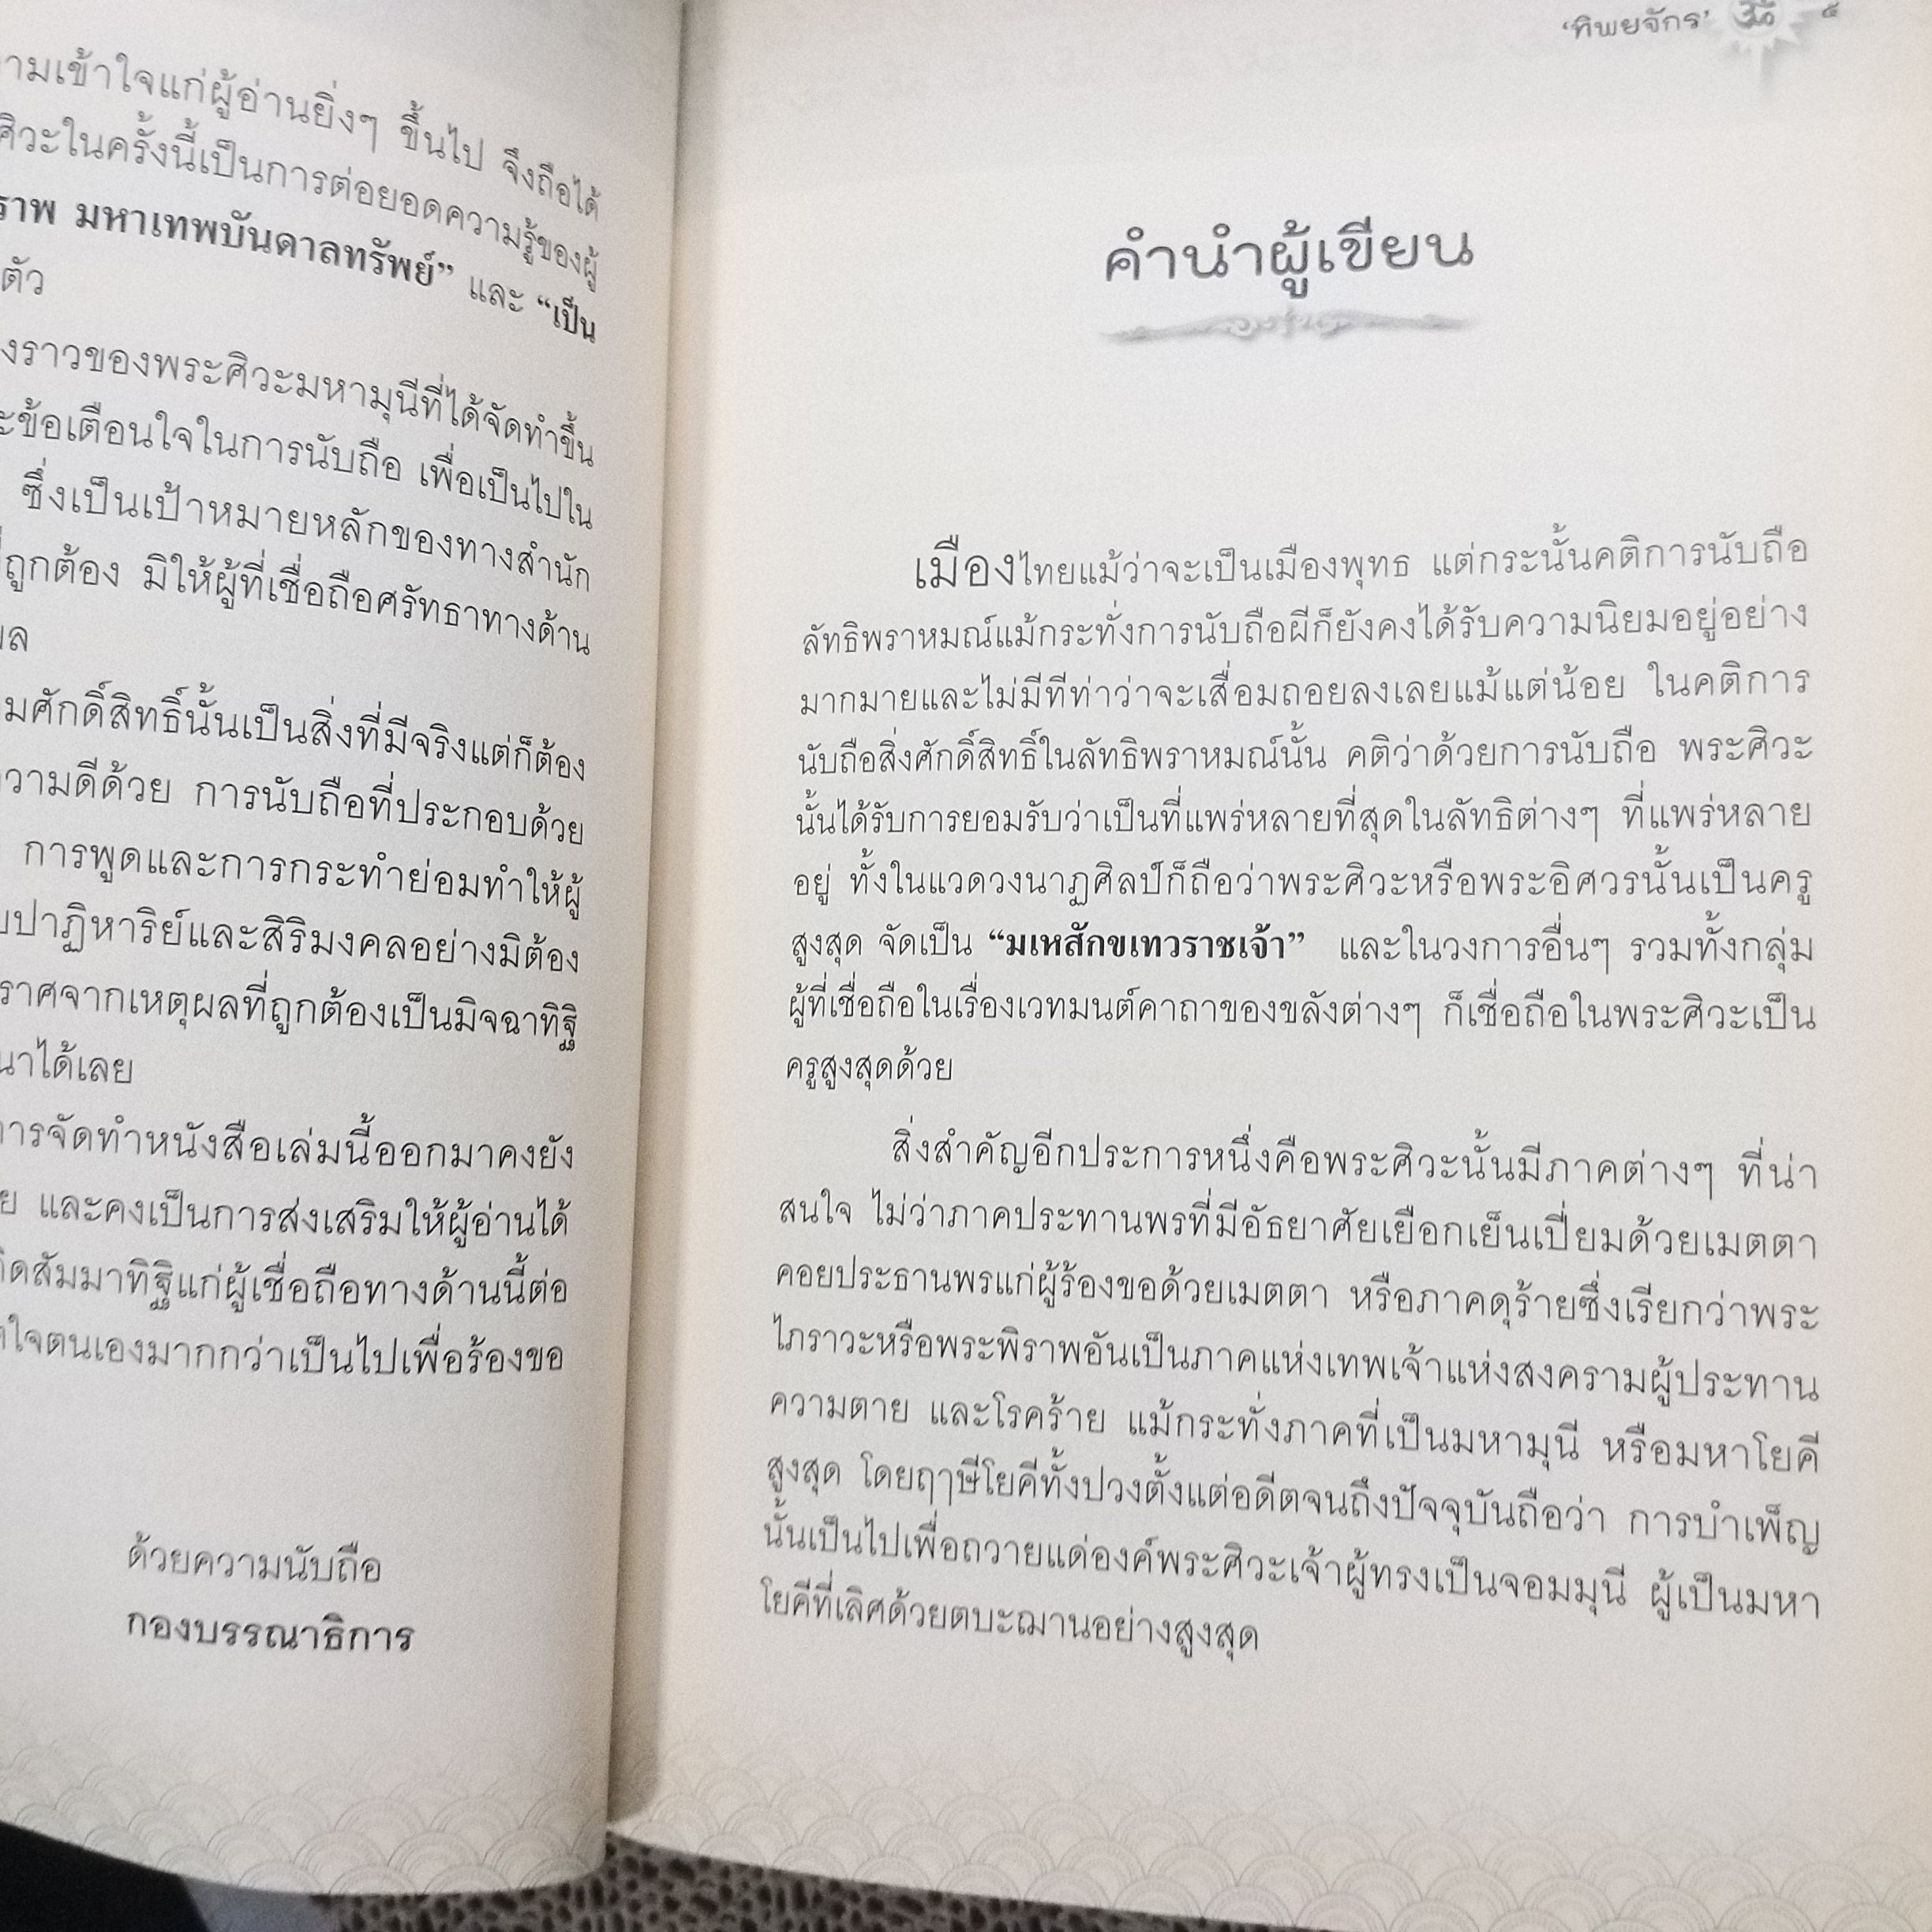 ามเข้าใจแก่ผู้อ่านยิ่งๆ ขึ้นไป จึงถือได้
ศิวะในครั้งนี้เป็นการต่อยอดความรู้ของผู้
ราพ มหาเทพบันดาลทรัพย์” และ “เป็น
ตัว
งราวของพระศิวะมหามุนีที่ได้จัดทำขึ้น
ะข้อเตือนใจในการนับถือ เพื่อเป็นไปใน
ซึ่งเป็นเป้าหมายหลักของทางสำนัก
ถูกต้อง มิให้ผู้ที่เชื่อถือศรัทธาทางด้าน
ผล
มศักดิ์สิทธิ์นั้นเป็นสิ่งที่มีจริงแต่ก็ต้อง
วามดีด้วย การนับถือที่ประกอบด้วย
การพูดและการกระทำย่อมทำให้ผู้
ปาฏิหาริย์และสิริมงคลอย่างมิต้อง
ราศจากเหตุผลที่ถูกต้องเป็นมิจฉาทิฐิ
นาได้เลย
การจัดทำหนังสือเล่มนี้ออกมาคงยัง
ย และคงเป็นการส่งเสริมให้ผู้อ่านได้
กิดสัมมาทิฐิแก่ผู้เชื่อถือทางด้านนี้ต่อ
ใจตนเองมากกว่าเป็นไปเพื่อร้องขอ
ด้วยความนับถือ
กองบรรณาธิการ
‘ทิพยจักร’ ๕
คำนำผู้เขียน
เมืองไทยแม้ว่าจะเป็นเมืองพุทธ แต่กระนั้นคติการนับถือ
ลัทธิพราหมณ์แม้กระทั่งการนับถือผีก็ยังคงได้รับความนิยมอยู่อย่าง
มากมายและไม่มีทีท่าว่าจะเสื่อมถอยลงเลยแม้แต่น้อย ในคติการ
นับถือสิ่งศักดิ์สิทธิ์ในลัทธิพราหมณ์นั้น คติว่าด้วยการนับถือ พระศิวะ
นั้นได้รับการยอมรับว่าเป็นที่แพร่หลายที่สุดในลัทธิต่างๆ ที่แพร่หลาย
อยู่ ทั้งในแวดวงนาฏศิลป์ก็ถือว่าพระศิวะหรือพระอิศวรนั้นเป็นครู
สูงสุด จัดเป็น “มเหสักขเทวราชเจ้า” และในวงการอื่นๆ รวมทั้งกลุ่ม
ผู้ที่เชื่อถือในเรื่องเวทมนต์คาถาของขลังต่างๆ ก็เชื่อถือในพระศิวะเป็น
ครูสูงสุดด้วย
สิ่งสำคัญอีกประการหนึ่งคือพระศิวะนั้นมีภาคต่างๆ ที่น่า
สนใจ ไม่ว่าภาคประทานพรที่มีอัธยาศัยเยือกเย็นเปี่ยมด้วยเมตตา
คอยประธานพรแก่ผู้ร้องขอด้วยเมตตา หรือภาคดุร้ายซึ่งเรียกว่าพระ
ไภราวะหรือพระพิราพอันเป็นภาคแห่งเทพเจ้าแห่งสงครามผู้ประทาน
ความตาย และโรคร้าย แม้กระทั่งภาคที่เป็นมหามุนี หรือมหาโยคี
สูงสุด โดยฤๅษีโยคีทั้งปวงตั้งแต่อดีตจนถึงปัจจุบันถือว่า การบำเพ็ญ
นั้นเป็นไปเพื่อถวายแด่องค์พระศิวะเจ้าผู้ทรงเป็นจอมมุนี ผู้เป็นมหา
โยคีที่เลิศด้วยตบะฌานอย่างสูงสุด